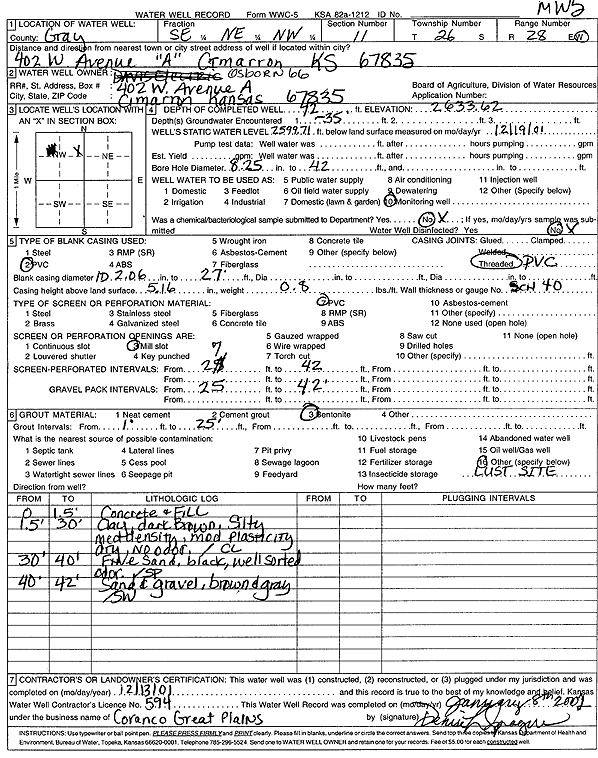 MW5
WATER WELL RECORD Form WWC-5 KSA 82a-1212 ID No.
1 LOCATION OF WATER WELL: Fraction Section Number Township Number Range Number
County: Gray SE ¼ NE ¼ NW ¼ 11 T 26 S R 28 E/W
Distance and direction from nearest town or city street address of well if located within city?
402 W Avenue "A" Cimarron KS 67835
2 WATER WELL OWNER: Davis Electric Osborn 66
RR#, St. Address, Box # : 402 W. Avenue A Board of Agriculture, Division of Water Resources
City, State, ZIP Code : Cimarron Kansas 67835 Application Number:
3 LOCATE WELL'S LOCATION WITH AN "X" IN SECTION BOX:
N
NW X NE
W E
SW SE
S
1 Mile
4 DEPTH OF COMPLETED WELL 42 ft. ELEVATION: 2633.62
Depth(s) Groundwater Encountered 1. ~35 ft. 2. ft. 3. ft.
WELL'S STATIC WATER LEVEL 2597.71 ft. below land surface measured on mo/day/yr 12/19/01
Pump test data: Well water was ft. after hours pumping gpm
Est. Yield gpm: Well water was ft. after hours pumping gpm
Bore Hole Diameter 8.25 in. to 42 ft., and in. to ft.
WELL WATER TO BE USED AS: 5 Public water supply 8 Air conditioning 11 Injection well
1 Domestic 3 Feedlot 6 Oil field water supply 9 Dewatering 12 Other (Specify below)
2 Irrigation 4 Industrial 7 Domestic (lawn & garden) 10 Monitoring well
Was a chemical/bacteriological sample submitted to Department? Yes No X ; If yes, mo/day/yrs sample was submitted Water Well Disinfected? Yes No X
5 TYPE OF BLANK CASING USED: 5 Wrought iron 8 Concrete tile CASING JOINTS: Glued Clamped
1 Steel 3 RMP (SR) 6 Asbestos-Cement 9 Other (specify below) Welded
2 PVC 4 ABS 7 Fiberglass Threaded PVC
Blank casing diameter ID 2.06 in. to 27 ft., Dia in. to ft., Dia in. to ft.
Casing height above land surface 5.16 in., weight 0.8 lbs./ft. Wall thickness or gauge No. SCH 40
TYPE OF SCREEN OR PERFORATION MATERIAL: 7 PVC 10 Asbestos-cement
1 Steel 3 Stainless steel 5 Fiberglass 8 RMP (SR) 11 Other (specify)
2 Brass 4 Galvanized steel 6 Concrete tile 9 ABS 12 None used (open hole)
SCREEN OR PERFORATION OPENINGS ARE: 5 Gauzed wrapped 8 Saw cut 11 None (open hole)
1 Continuous slot 3 Mill slot 6 Wire wrapped 9 Drilled holes
2 Louvered shutter 4 Key punched 7 Torch cut 10 Other (specify) ft.
SCREEN-PERFORATED INTERVALS: From 27 ft. to 42 ft., From ft. to ft.
From ft. to ft., From ft. to ft.
GRAVEL PACK INTERVALS: From 25 ft. to 42' ft., From ft. to ft.
From ft. to ft., From ft. to ft.
6 GROUT MATERIAL: 1 Neat cement 2 Cement grout 3 Bentonite 4 Other
Grout Intervals: From 1' ft. to 25' ft., From ft. to ft., From ft. to ft.
What is the nearest source of possible contamination: 10 Livestock pens 14 Abandoned water well
1 Septic tank 4 Lateral lines 7 Pit privy 11 Fuel storage 15 Oil well/Gas well
2 Sewer lines 5 Cess pool 8 Sewage lagoon 12 Fertilizer storage 16 Other (specify below)
3 Watertight sewer lines 6 Seepage pit 9 Feedyard 13 Insecticide storage LUST SITE
Direction from well? How many feet?
FROM TO LITHOLOGIC LOG FROM TO PLUGGING INTERVALS
0 1.5' Concrete & Fill
1.5' 30' Clay, dark Brown, Silty
med density, mod plasticity
dry, no odor, / CL
30' 40' Fine Sand, black, well sorted
odor. / SP
40' 42' Sand & gravel, brown & gray
/SW
7 CONTRACTOR'S OR LANDOWNER'S CERTIFICATION: This water well was (1) constructed, (2) reconstructed, or (3) plugged under my jurisdiction and was
completed on (mo/day/year) 12/13/01 and this record is true to the best of my knowledge and belief. Kansas
Water Well Contractor's Licence No. 594 This Water Well Record was completed on (mo/day/yr) January 8th 2002
under the business name of Coranco Great Plains by (signature) Denise
INSTRUCTIONS: Use typewriter or ball point pen. PLEASE PRESS FIRMLY and PRINT clearly. Please fill in blanks, underline or circle the correct answers. Send top three copies to Kansas Department of Health and
Environment, Bureau of Water, Topeka, Kansas 66620-0001. Telephone 785-296-5524. Send one to WATER WELL OWNER and retain one for your records. Fee of $5.00 for each constructed well.